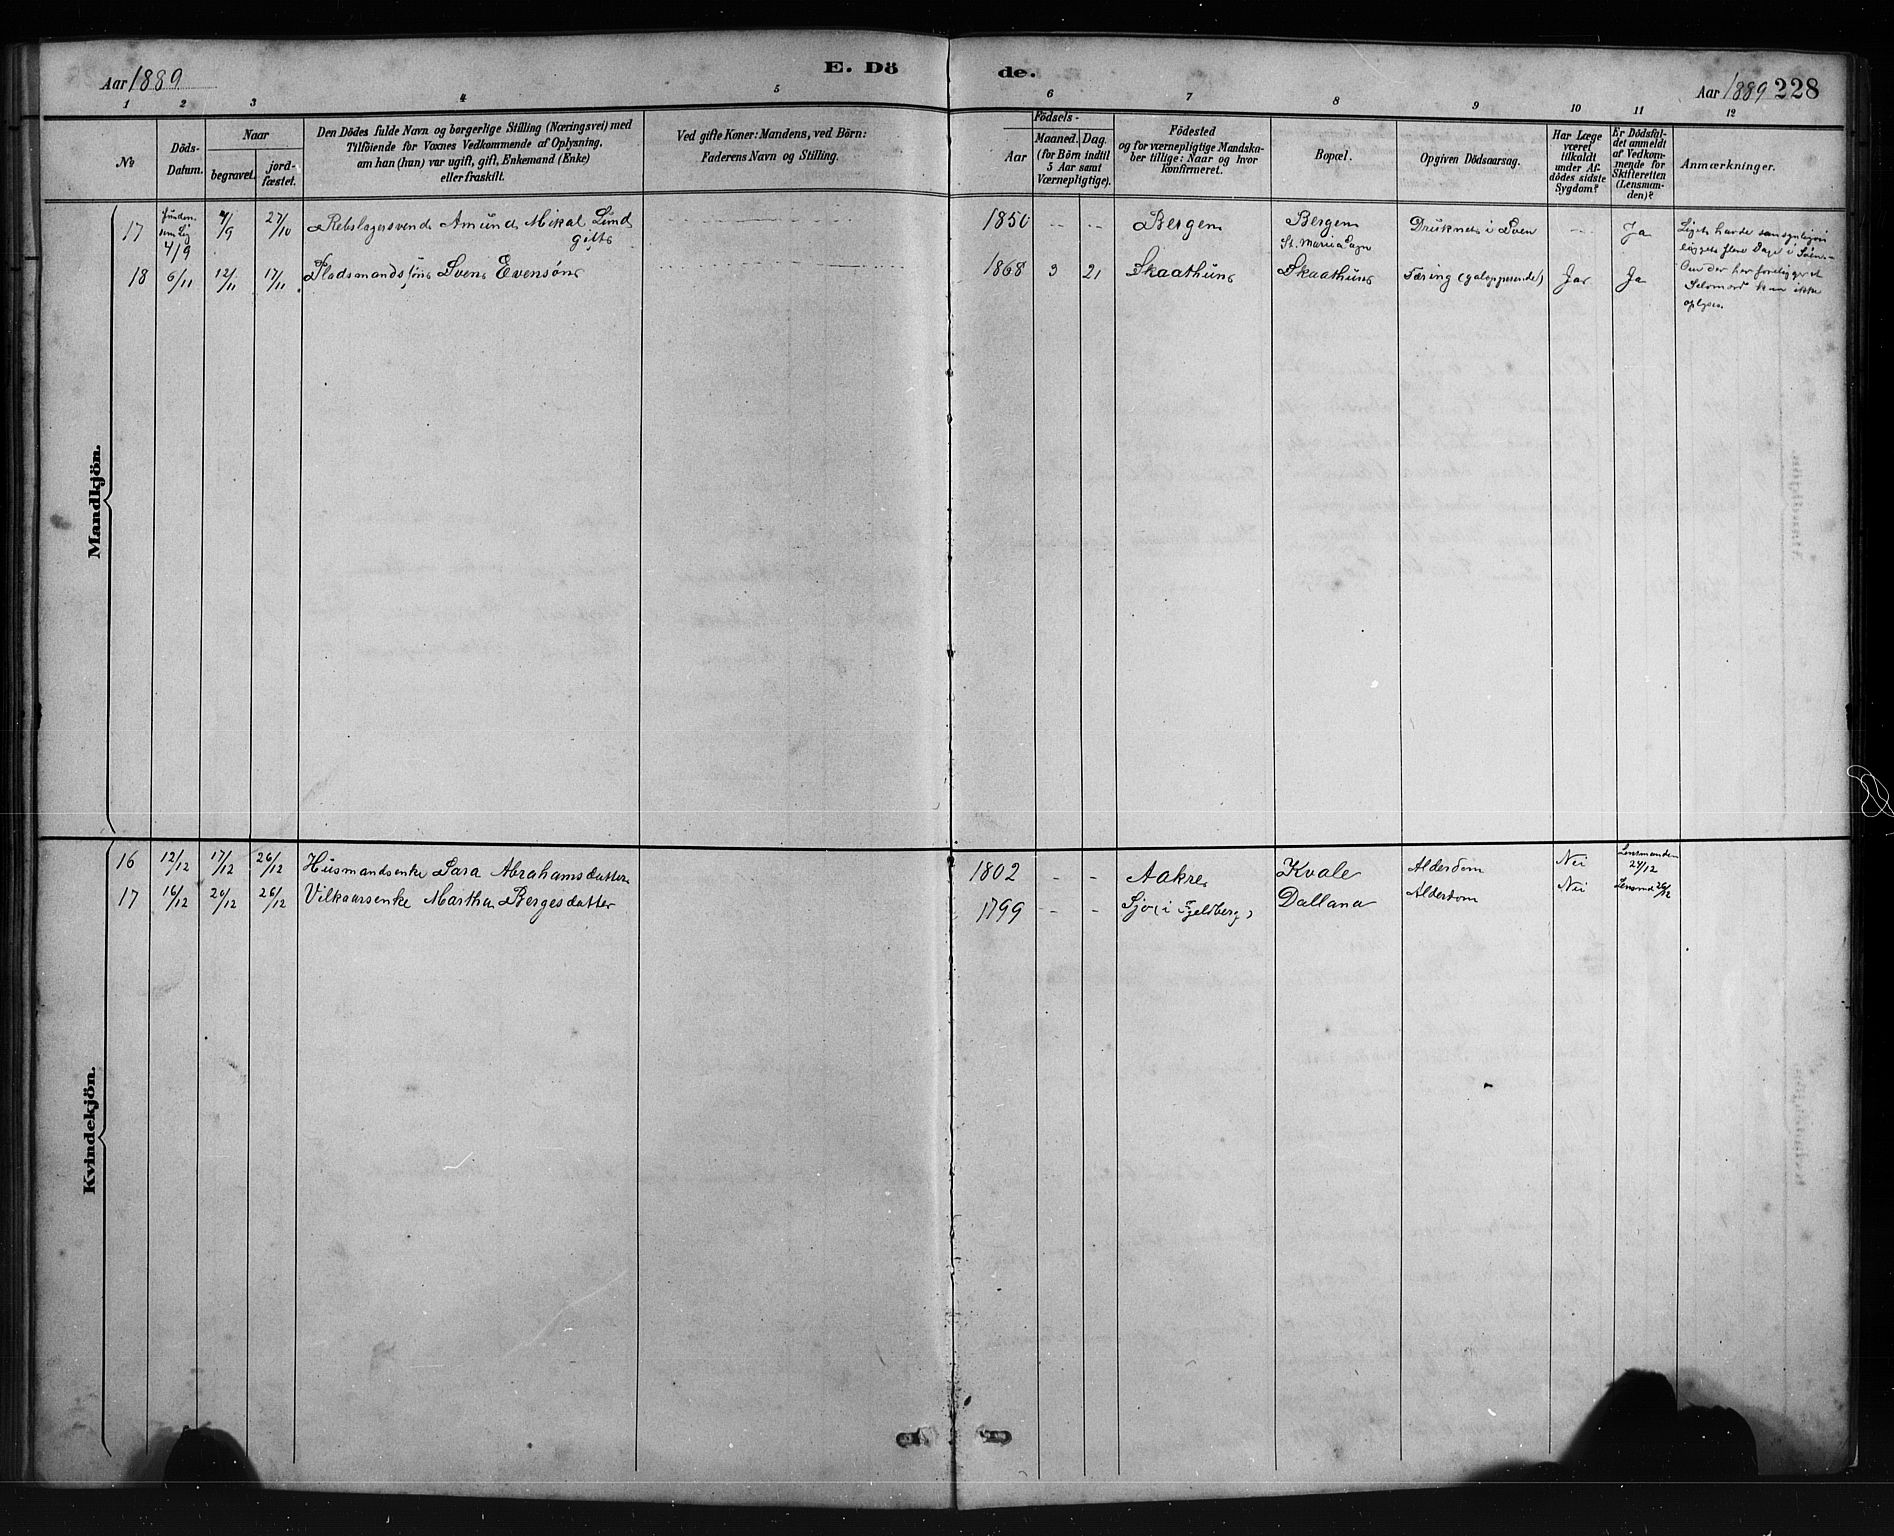 Aar 1889. E. Dö de. Aar 1889 228
1 2 3 4 5 6 7 8 9 10 11 12
No
Döds-
Datum.
Naar
begravet.
jord-
fæstet.
Den Dödes fulde Navn og borgerlige Stilling (Næringsvei) med
Tilföiende for Voxnes Vedkommende af Oplysning,
om han (hun) var ugift, gift, Enkemand (Enke)
eller fraskilt.
Ved gifte Koner: Mandens, ved Börn:
Faderens Navn og Stilling.
Födsels-
Aar
Maaned. Dag.
(for Börn indtil
5 Aar samt
Værnepligtige).
Födested
og for værnepligtige Mandska-
ber tillige: Naar og hvor
konfirmeret.
Bopæl.
Opgiven Dödsaarsag.
Har Læge
været
tilkaldt
under Af-
dödes sidste
Sygdom?
Er Dödsfal-
det anmeldt
af Vedkom-
mende for
Skifteretten
(Lensman-
den)?
Anmærkninger.
Mandkjön.
17 funden som Lig 4/9 7/9 27/10 Rebslagersvend Amund Mikal Lund gift 1850 -- -- Bergen Bergen St. Maria Sogn Druknet i Söen -- Ja
Liget havde sansynligvis
ligget flere Dage i Söen.
Om der har foreligget
Selvmord kan ikke
oplyses.
18 6/11 12/11 17/11 Pladsmandssön Sven Evensön 1868 3 21 Skaathun Skaathun Tæring (galopperende) Ja Ja
Kvindekjön.
16 12/12 17/12 26/12 Husmandsenke Sara Abrahamsdatter 1802 - - Aakre Kvale Alderdom Nei Lensmanden 24/12
17 16/12 20/12 26/12 Vilkaarsenke Martha Bergesdatter 1799 - - Sjo (i Fjeldberg) Dallana Alderdom Nei Lensmd 26/12